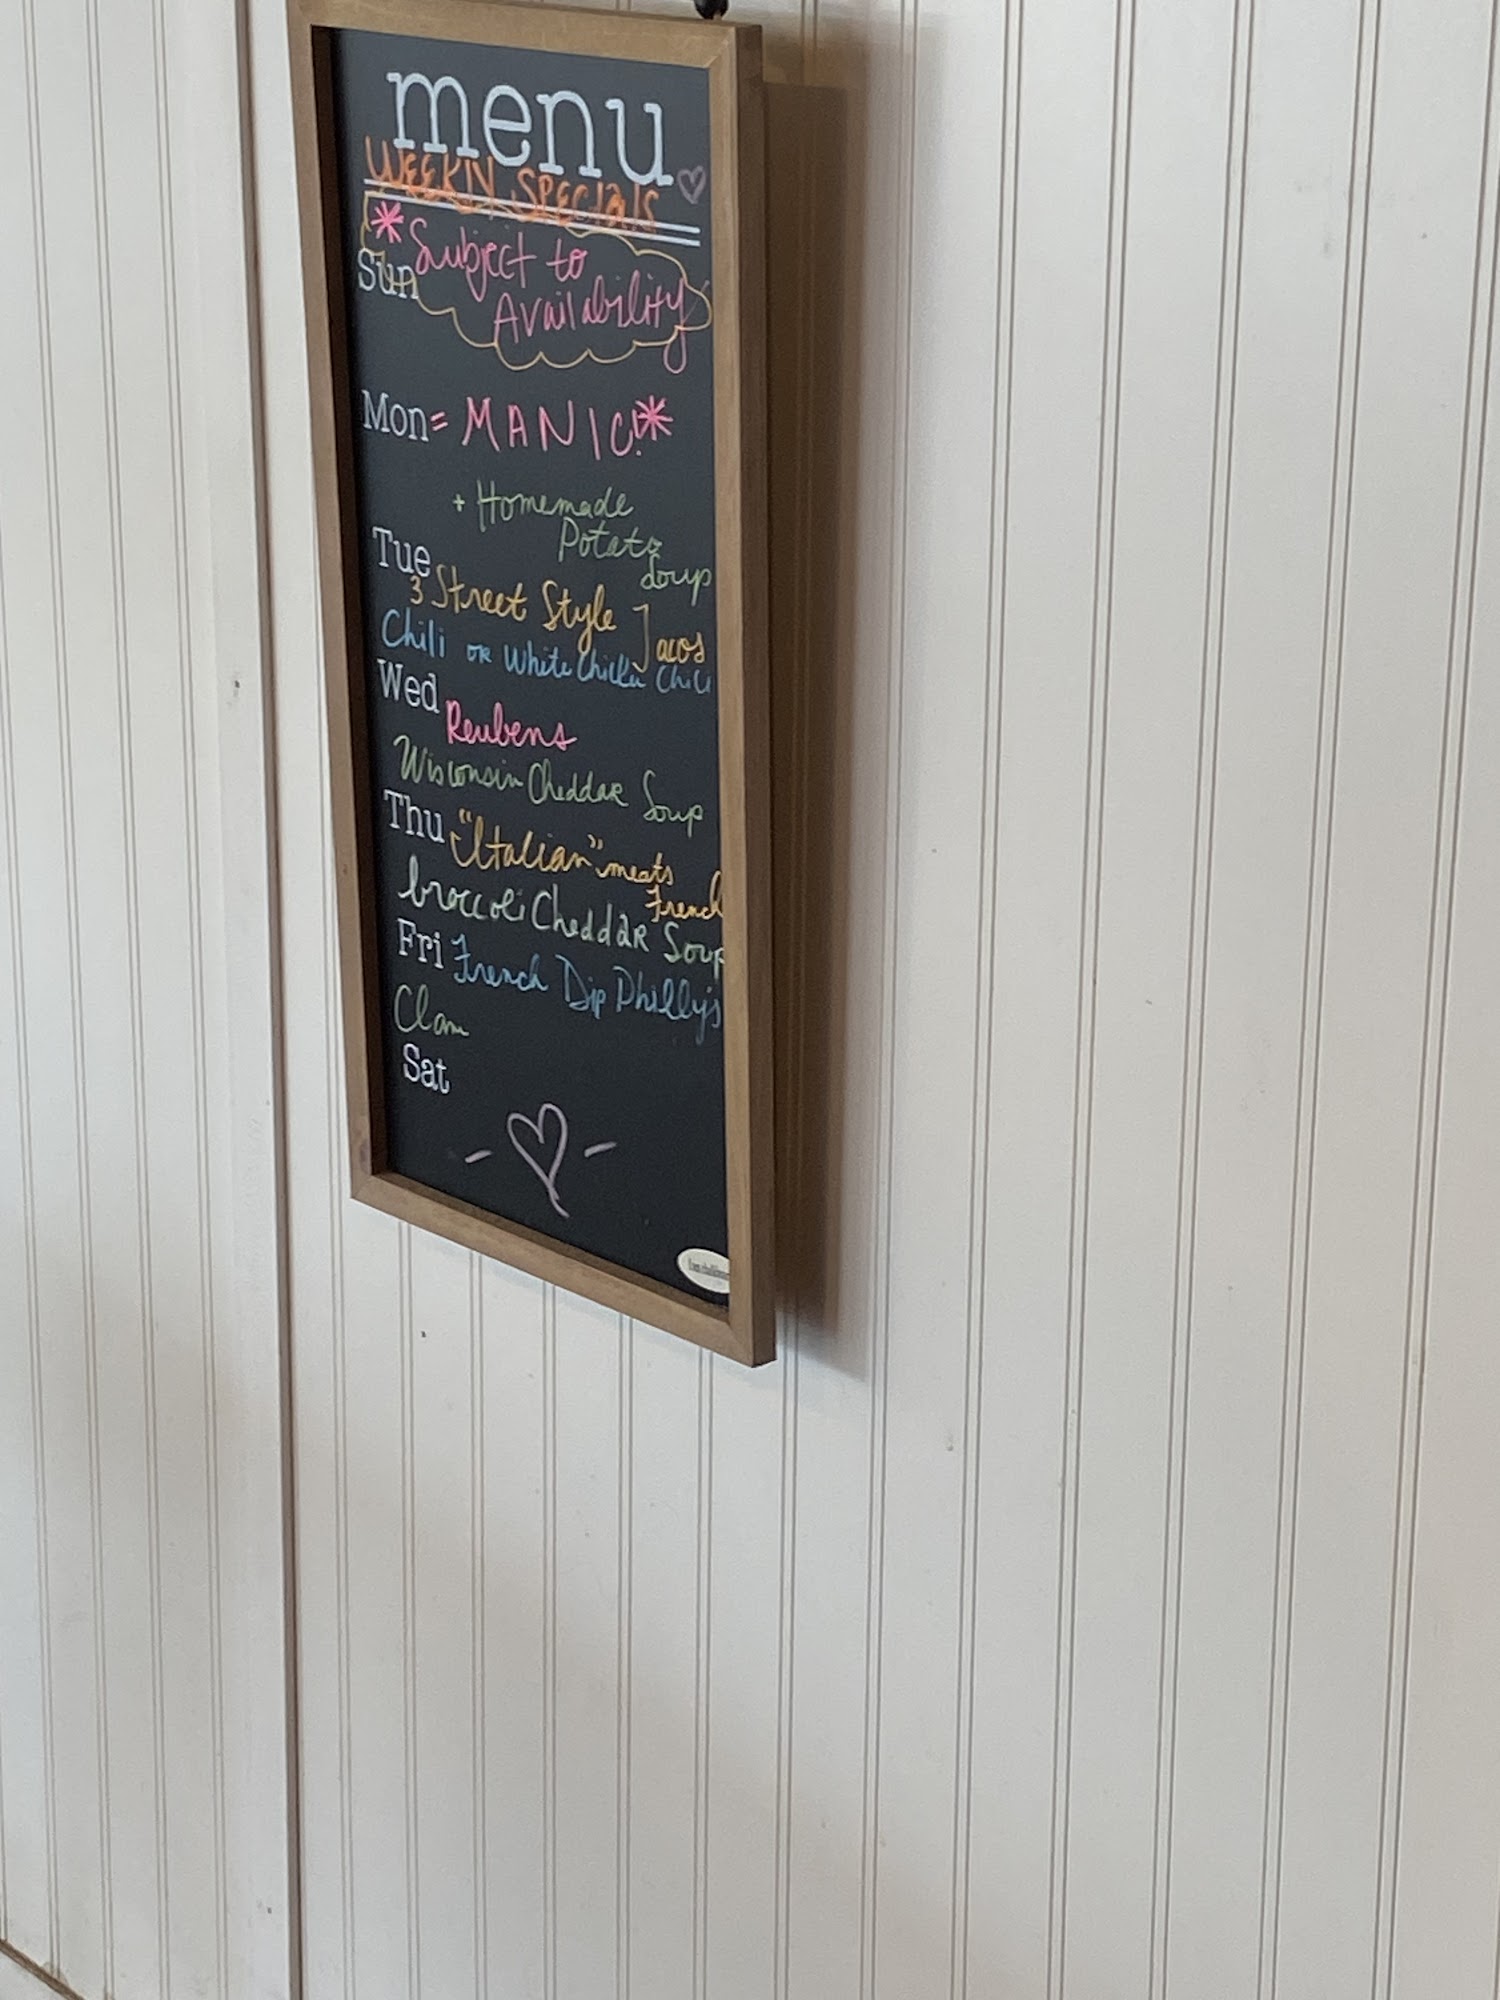 menu
WEEKLY SPECIALS
*Subject to
Sun
Availability
Mon = MANIC!*
+ Homemade
Potato
Soup
Tue
3 Street Style Tacos
Chili or White Chicken Chili
Wed Reubens
Wisconsin Cheddar Soup
Thu "Italian" meets
French
broccoli Cheddar Soup
Fri French Dip Philly's
Clam
Sat